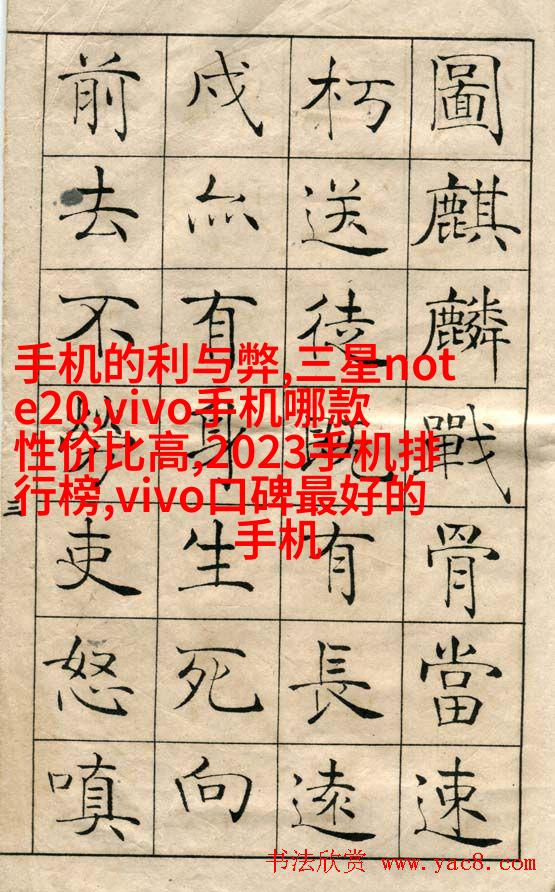 圖麒麟戰骨當速
朽送徒既有長遠
戍亦有身生死向
前去不勞吏怒嗔
三
手机的利与弊,三星not
e20,vivo手机哪款
性价比高,2023手机排
行榜,vivo口碑最好的
手机
书法欣赏 www.yac8.com